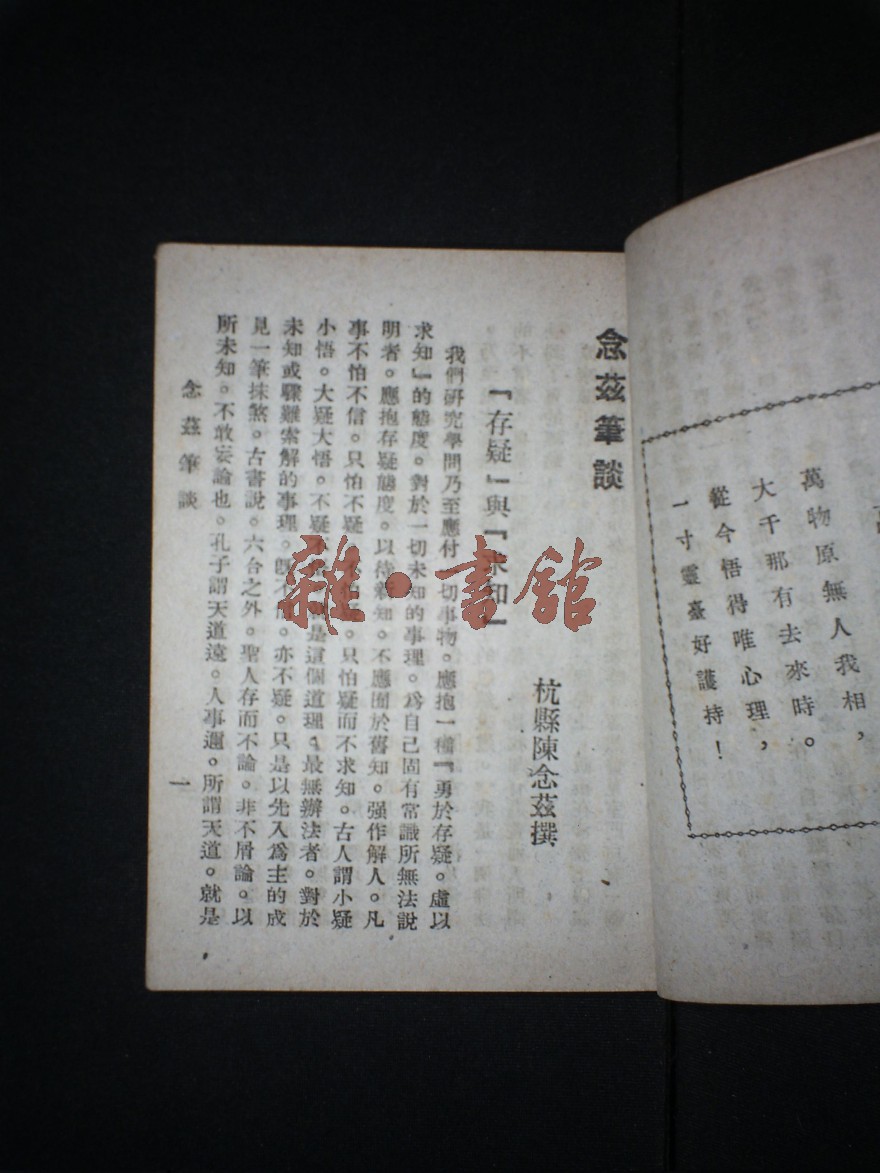 萬物原無人我相，
大千那有去來時。
從今悟得唯心理，
一寸靈臺好護持！
念茲筆談
「存疑」與「求知」
杭縣陳念茲撰
我們研究學問乃至應付一切事物。應抱一種『勇於存疑。虛以
求知』的態度。對於一切未知的事理。爲自己固有常識所無法說
明者。應抱存疑態度。以待新知。不應囿於舊知。强作解人。凡
事不怕不信。只怕不疑。不怕疑。只怕疑而不求知。古人謂小疑
小悟。大疑大悟。不疑不悟。就是這個道理。最無辦法者。對於
未知或驟難索解的事理。既不信。亦不疑。只是以先入爲主的成
見一筆抹煞。古書說。六合之外。聖人存而不論。非不屑論。以
所未知。不敢妄論也。孔子謂天道遠。人事邇。所謂天道。就是
念茲筆談
一
雜·書館